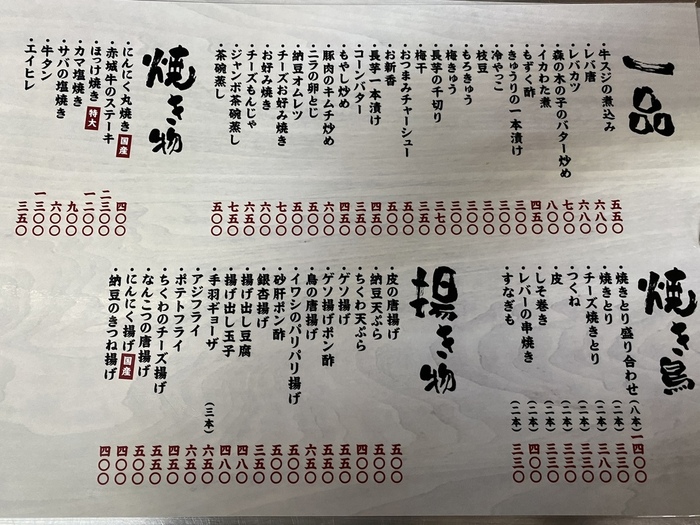 一品
・牛スジの煮込み 五五〇
・レバ唐 六八〇
・レバカツ 六八〇
・森の木の子のバター炒め 七〇〇
・イカわた煮 八〇〇
・もずく酢 四五〇
・きゅうりの一本漬け 三〇〇
・冷やっこ 三〇〇
・枝豆 三〇〇
・もろきゅう 三〇〇
・梅きゅう 三〇〇
・長芋の千切り 三七〇
・梅干 三五〇
・おつまみチャーシュー 五五〇
・お新香 五五〇
・長芋一本漬け 四五〇
・コーンバター 三五〇
・もやし炒め 四五〇
・豚肉のキムチ炒め 六〇〇
・ニラの卵とじ 五〇〇
・納豆オムレツ 五五〇
・チーズお好み焼き 七〇〇
・お好み焼き 六〇〇
・チーズもんじゃ 六五〇
・ジャンボ茶碗蒸し 七五〇
・茶碗蒸し 五〇〇
焼き物
・にんにく丸焼き 国産 四〇〇
・赤城牛のステーキ 二三〇〇
・ほっけ焼き 特大 一二〇〇
・カマ塩焼き 九〇〇
・サバの塩焼き 六〇〇
・牛タン 一三〇〇
・エイヒレ 三五〇
焼き鳥
・焼きとり盛り合わせ（八本）一四〇〇
・焼きとり（二本）三三〇
・チーズ焼きとり（二本）三八〇
・つくね（二本）三三〇
・皮（二本）三三〇
・しそ巻き（二本）三三〇
・レバーの串焼き（二本）四〇〇
・すなぎも（二本）三三〇
揚き物
・皮の唐揚げ 五〇〇
・納豆天ぷら 五〇〇
・ちくわ天ぷら 四〇〇
・ゲソ揚げ 五五〇
・ゲソ揚げポン酢 五五〇
・鳥の唐揚げ 六五〇
・イワシのパリパリ揚げ 五五〇
・砂肝ポン酢 五〇〇
・銀杏揚げ 三五〇
・揚げ出し豆腐 四八〇
・揚げ出し玉子 四八〇
・手羽ギョーザ（三本）六五〇
・アジフライ 六五〇
・ポテトフライ 四五〇
・ちくわのチーズ揚げ 五五〇
・なんこつの唐揚げ 五五〇
・にんにく揚げ 国産 四〇〇
・納豆のきつね揚げ 四〇〇